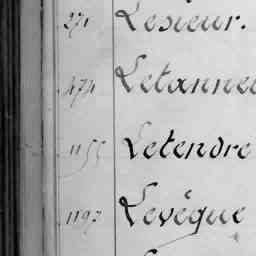 271 Lesieur.
474 Letanneu
1155 Letendre
1197 Levêque